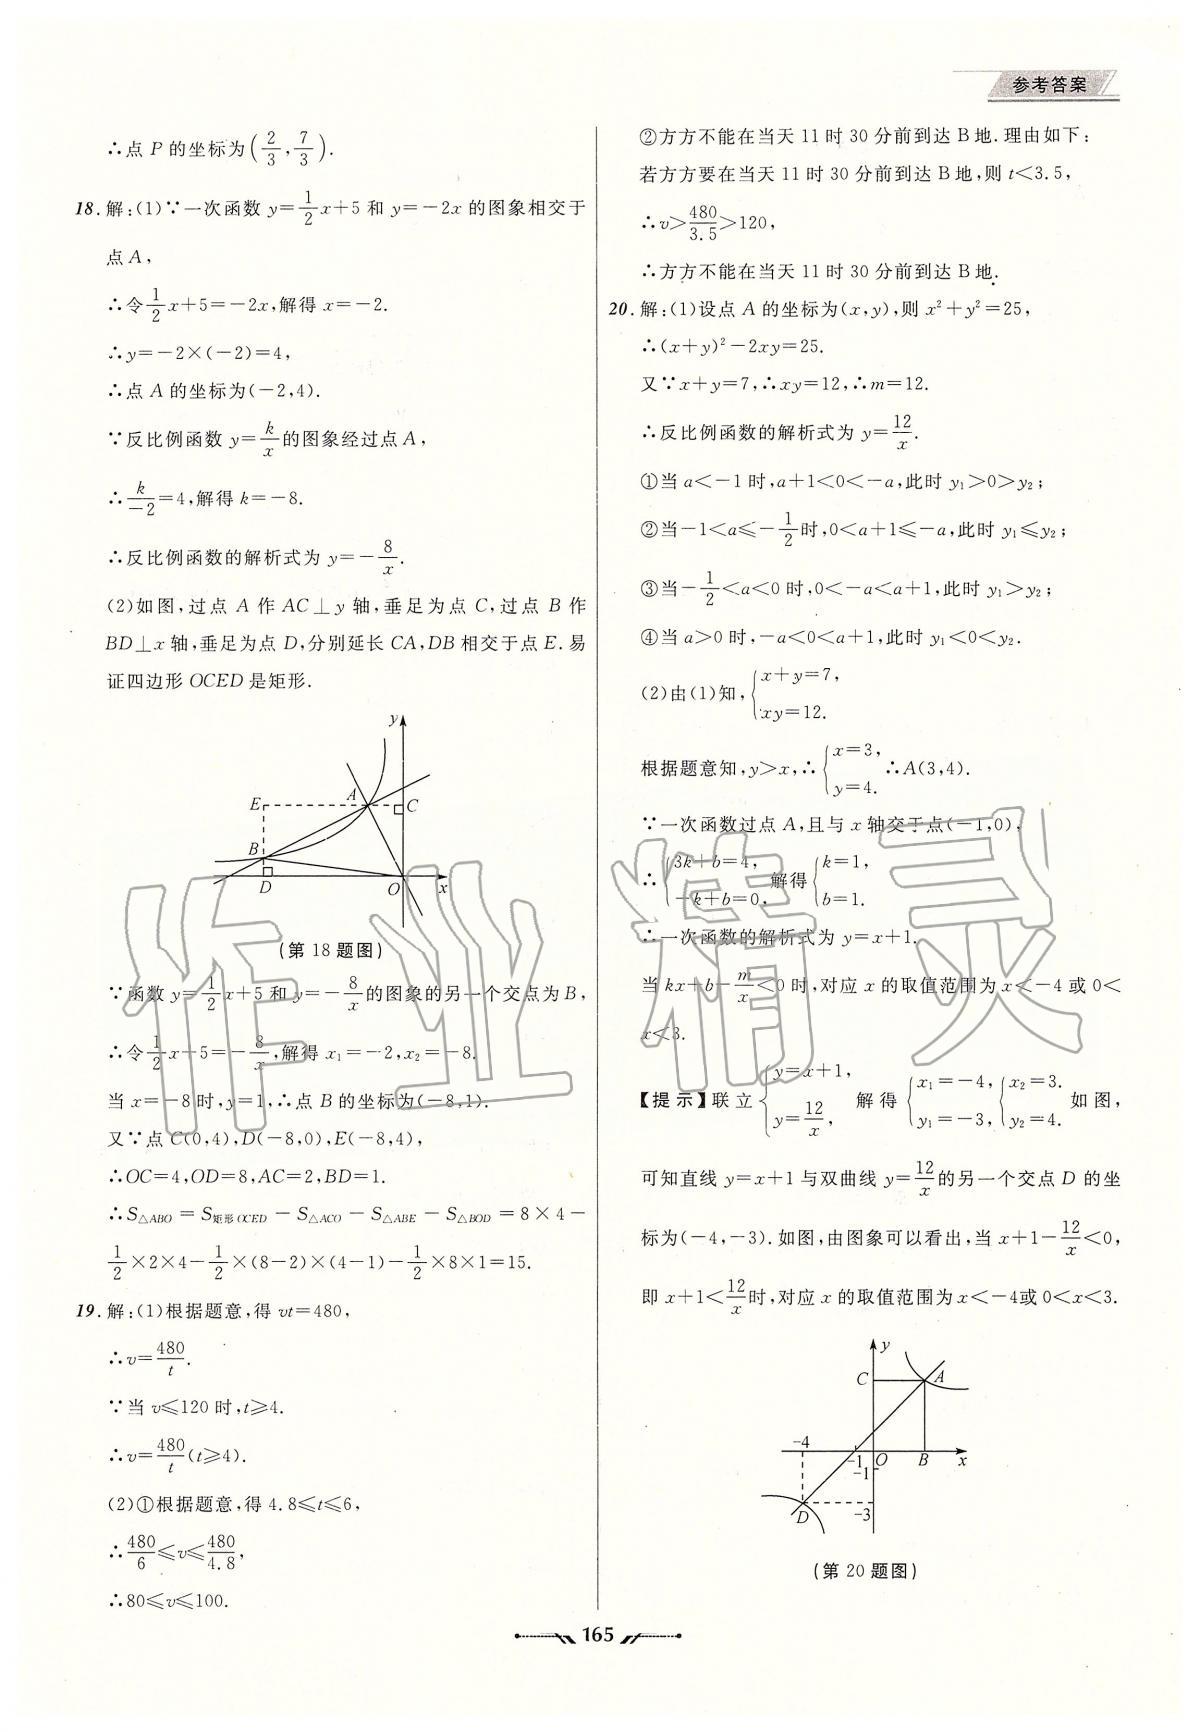 参考答案
∴点 P 的坐标为(2/3,7/3).
18.解:(1)∵一次函数 y=1/2x+5 和 y=-2x 的图象相交于
点 A,
∴令1/2x+5=-2x,解得 x=-2.
∴y=-2×(-2)=4,
∴点 A 的坐标为(-2,4).
∵反比例函数 y=k/x的图象经过点 A,
∴k/-2=4,解得 k=-8.
∴反比例函数的解析式为 y=-8/x.
(2)如图,过点 A 作 AC⊥y 轴,垂足为点 C,过点 B 作
BD⊥x 轴,垂足为点 D,分别延长 CA,DB 相交于点 E.易
证四边形 OCED 是矩形.
y
E A C
B
D O x
(第 18 题图)
∵函数 y=1/2x+5 和 y=-8/x的图象的另一个交点为 B,
∴令1/2x+5=-8/x,解得 x₁=-2,x₂=-8.
当 x=-8时,y=1,∴点 B 的坐标为(-8,1).
又∵点 C(0,4),D(-8,0),E(-8,4),
∴OC=4,OD=8,AC=2,BD=1.
∴S△ABO=S矩形OCED-S△ACO-S△ABE-S△BOD=8×4-
1/2×2×4-1/2×(8-2)×(4-1)-1/2×8×1=15.
19.解:(1)根据题意,得 vt=480,
∴v=480/t.
∵当 v≤120 时,t≥4.
∴v=480/t(t≥4).
(2)①根据题意,得 4.8≤t≤6,
∴480/6≤v≤480/4.8,
∴80≤v≤100.
②方方不能在当天 11 时 30 分前到达 B 地.理由如下:
若方方要在当天 11 时 30 分前到达 B 地,则 t<3.5,
∴v>480/3.5>120,
∴方方不能在当天 11 时 30 分前到达 B 地.
20.解:(1)设点 A 的坐标为(x,y),则 x²+y²=25,
∴(x+y)²-2xy=25.
又∵x+y=7,∴xy=12,∴m=12.
∴反比例函数的解析式为 y=12/x.
①当 a<-1 时,a+1<0<-a,此时 y₁>0>y₂;
②当-1<a≤-1/2时,0<a+1≤-a,此时 y₁≤y₂;
③当-1/2<a<0 时,0<-a<a+1,此时 y₁>y₂;
④当 a>0 时,-a<0<a+1,此时 y₁<0<y₂.
(2)由(1)知,{x+y=7, xy=12.
根据题意知,y>x,∴{x=3, y=4. ∴A(3,4).
∵一次函数过点 A,且与 x 轴交于点(-1,0),
∴{3k+b=4, -k+b=0, 解得{k=1, b=1.
∴一次函数的解析式为 y=x+1.
当 kx+b-m/x<0 时,对应 x 的取值范围为 x<-4 或 0<
x<3.
【提示】联立{y=x+1, y=12/x, 解得{x₁=-4, y₁=-3, {x₂=3. y₂=4. 如图,
可知直线 y=x+1 与双曲线 y=12/x的另一个交点 D 的坐
标为(-4,-3).如图,由图象可以看出,当 x+1-12/x<0,
即 x+1<12/x时,对应 x 的取值范围为 x<-4或 0<x<3.
y
C A
-4 -1 O B x
-1
D -3
(第 20 题图)
165
作业精灵